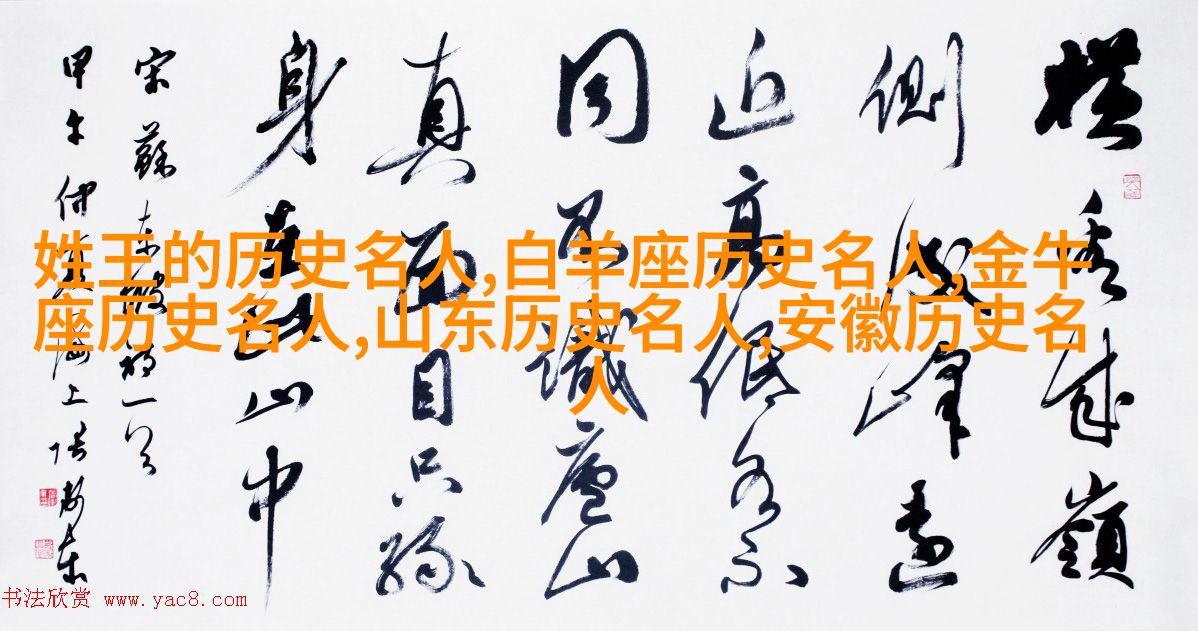 横看成嶺
側成峰遠
近高低各不
同不識廬山
真面目只緣
身在此山中
宋蘇東坡詩一首
甲午仲海上張東
姓王的历史名人,白羊座历史名人,金牛
座历史名人,山东历史名人,安徽历史名
人
书法欣赏 www.yac8.com